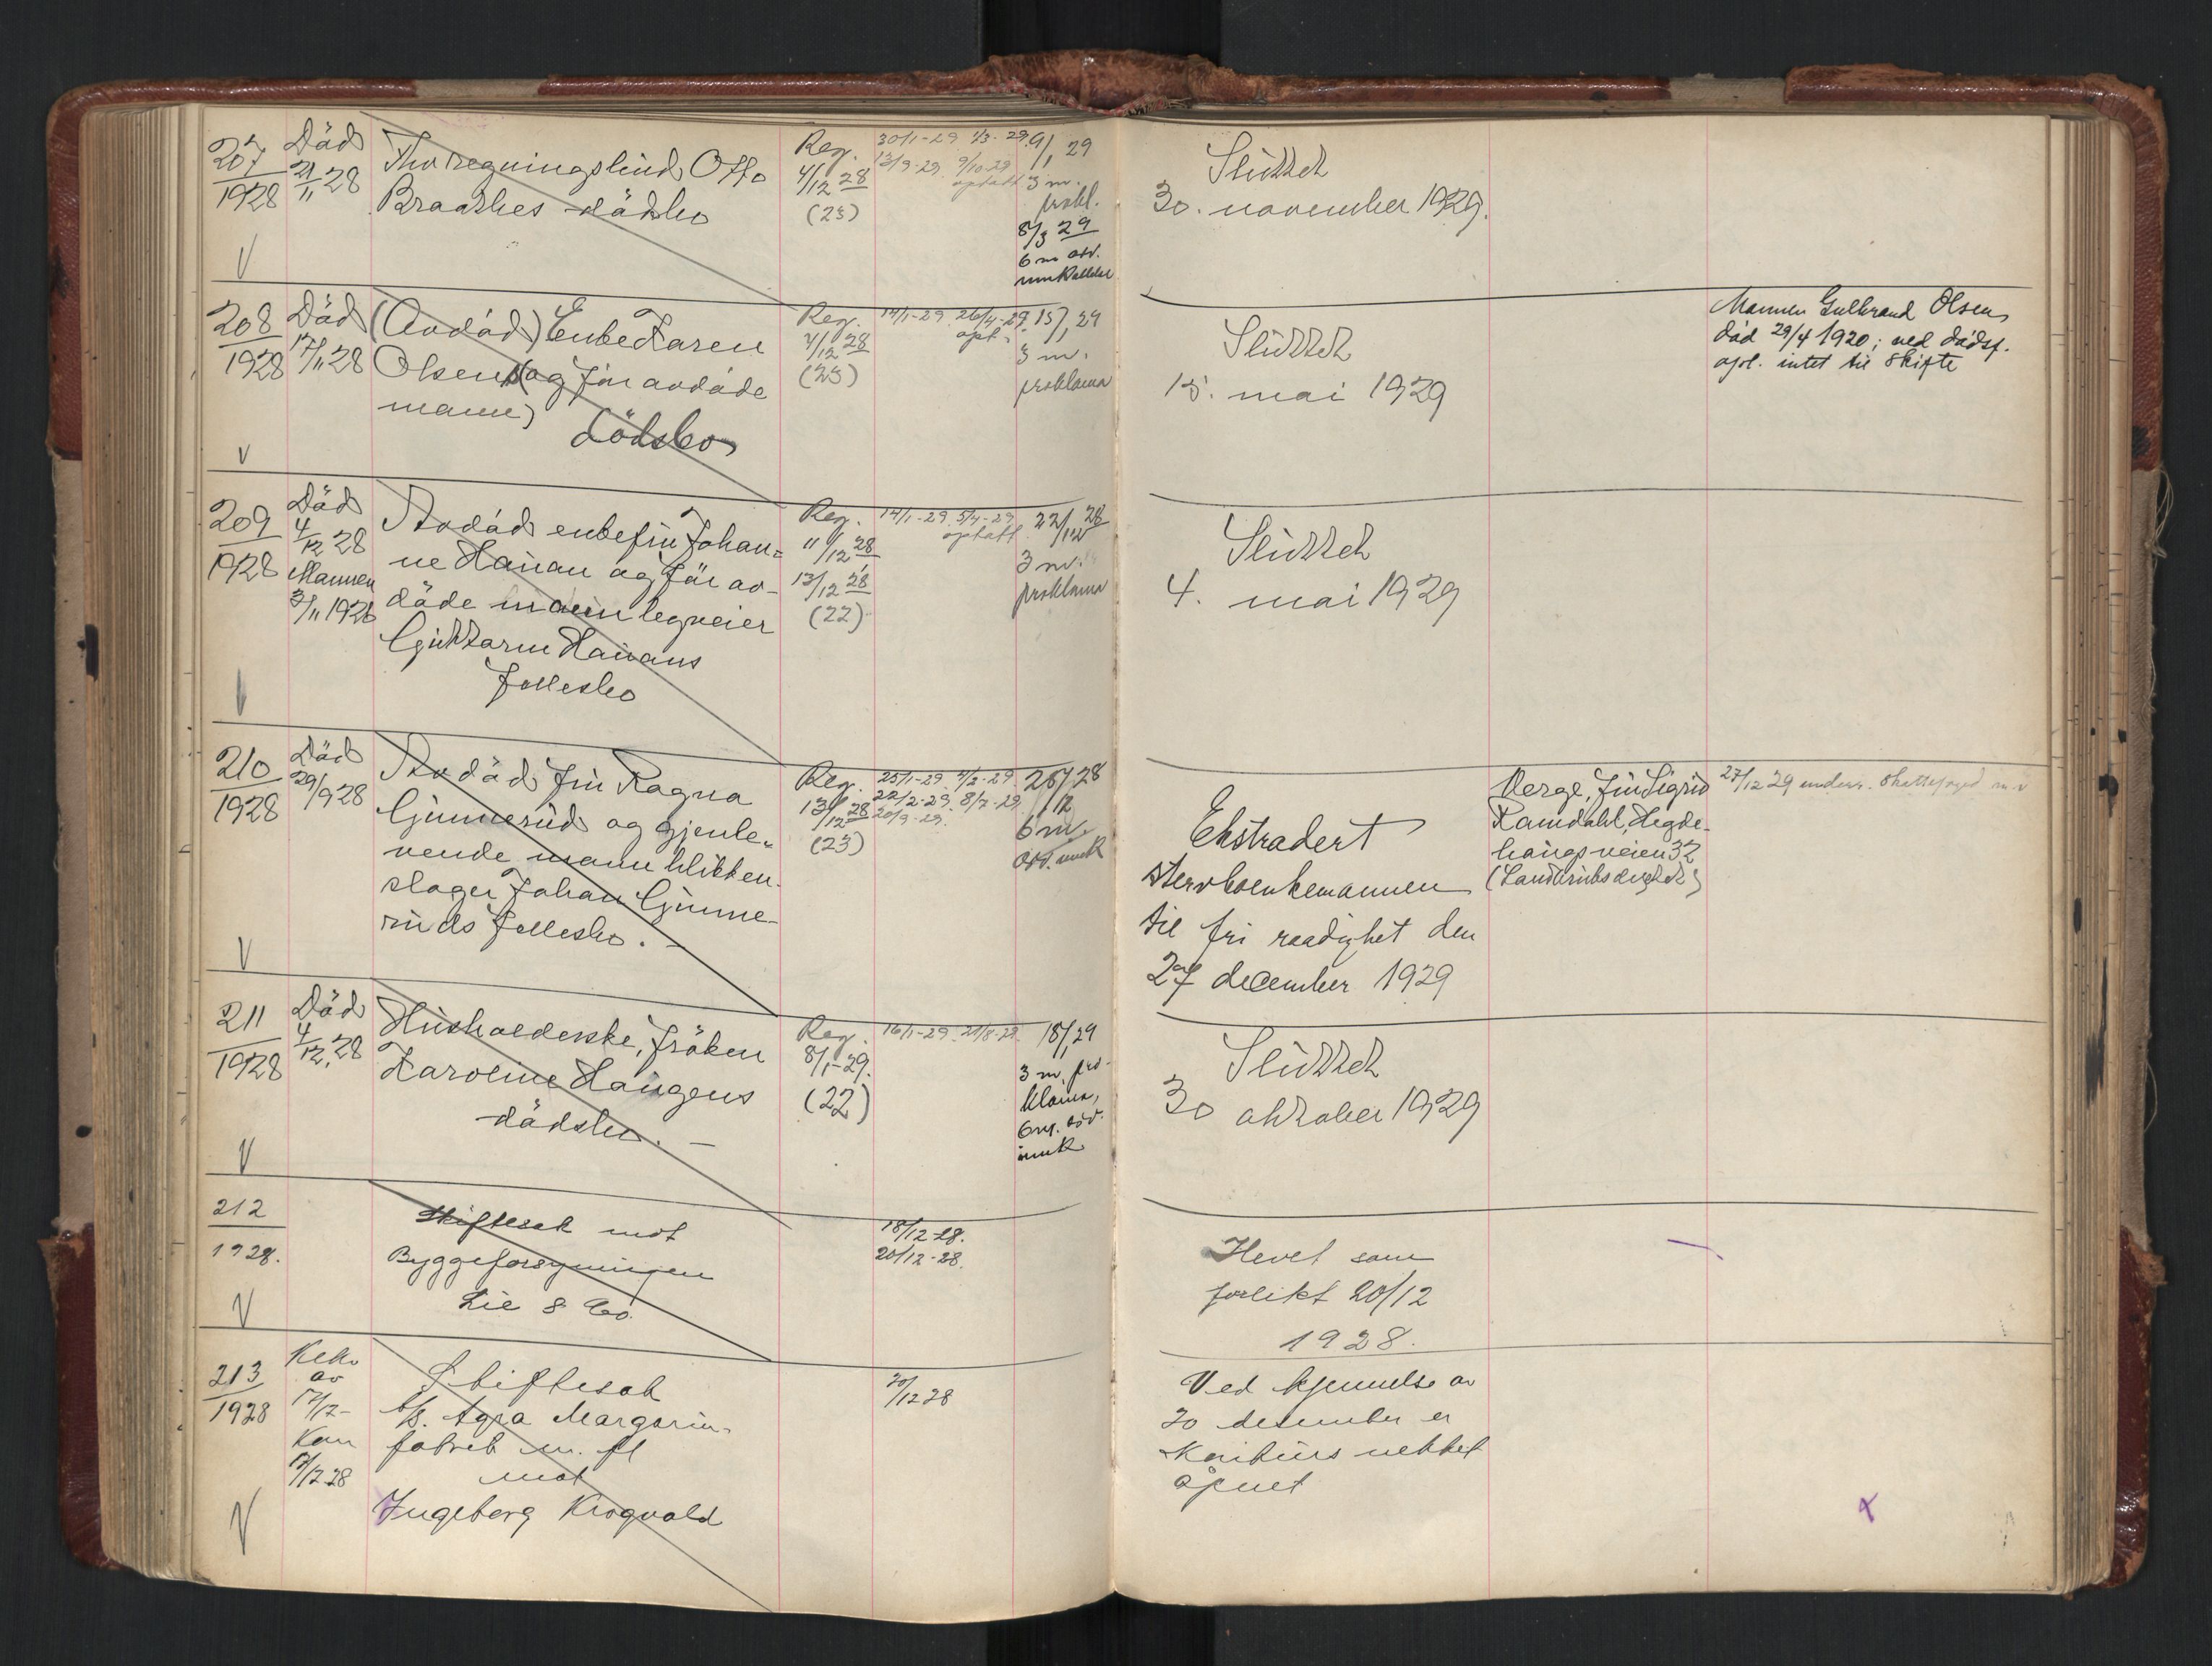 207
1928
Död
21/11 28
Braathes dödsbo
Reg.
4/12 28
(23)
30/1-29. 1/3-29.
13/9-29. 9/10-29
optatt
9/1 29
3 m.
prokl.
8/3 29
6 m
Sluttet
30. november 1929.
208
1928
Död
17/11 28
(Avdöd) Enke Karen
Olsens (og för avdöde
mann)
dödsbo
Reg.
4/12 28
(23)
14/1-29. 26/4-29.
opt.
15/1 29
3 m.
proklama
Sluttet
15. mai 1929
Mannen Gulbrand Olsen,
död 29/4 1920; ved dödsf.
opl. intet til skifte
209
1928
Död
4/12 28
Mannen
3/11 1926
Avdöd enkefru Johan=
ne Hauan og för av-
döde mann
Hauans
fellesbo
Reg.
11/12 28
13/12 28
(22)
14/1-29. 5/4-29.
optatt
22/12 28
3 m.
proklama
Sluttet
4. mai 1929
210
1928
Död
29/9 28
Avdöd fru Ragna
Gunneruds og gjenle=
vende mann blikken-
slager Johan Gunne-
ruds fellesbo.
Reg.
13/12 28
(23)
25/1-29.
22/2-29. 8/7-29.
20/9-29.
28/12 28
6 m.
Ekstradert
sterboenkemannen
til fri raadighet den
27 december 1929
Verge, fru Sigrid
Ramdahl, Hegde-
haugsveien 32
27/12 29
211
1928
Död
4/12 28
Husholderske, fröken
Karoline Haugens
dödsbo. —
Reg.
8/1-29.
(22)
16/1-29.
18/1 29
3 m. pro-
klama,
Sluttet
30 oktober 1929
212
1928.
Skiftesak mot
Byggeforsyningen
Lie & Co.
18/12-28.
20/12-28.
Hevet som
forlikt 20/12
1928.
213
1928
av
17/12-
Kon
Skiftesak
A/S. Agra Margarin-
fabrik m. fl
mot
Ingeborg Krogvold
20/12 28
Ved kjennelse av
20 desember er
konkurs nektet
åpnet